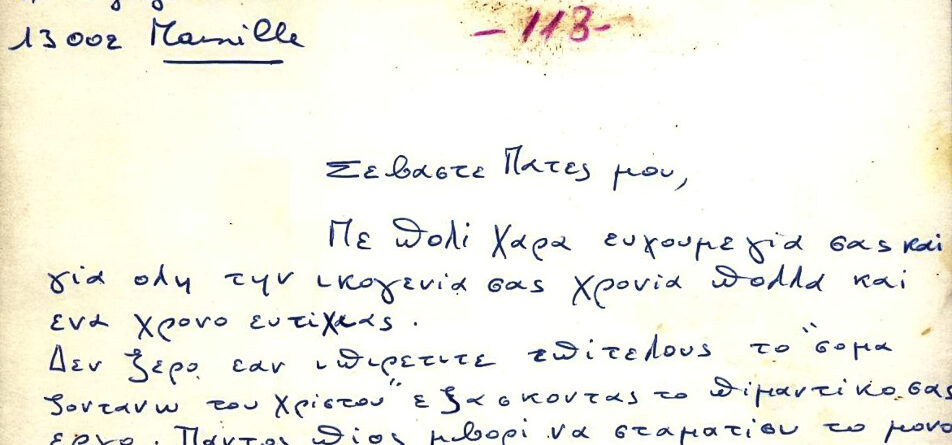 13002 Marseille
- 113 -
Σεβαστε Πατες μου,
Με πολι χαρα ευχουμε γία σας και
γία ολη την ικογενία σας χρονία πολλα και
ενα χρονο ευτιχιας.
Δεν ξερο εαν ιπιρετιτε επίτελους το "σομα
ζοντανω του χρίστου" εξασκοντας το πιμαντικο σας
εργο. Παντος πίος μπορι να σταματίσι το μονο